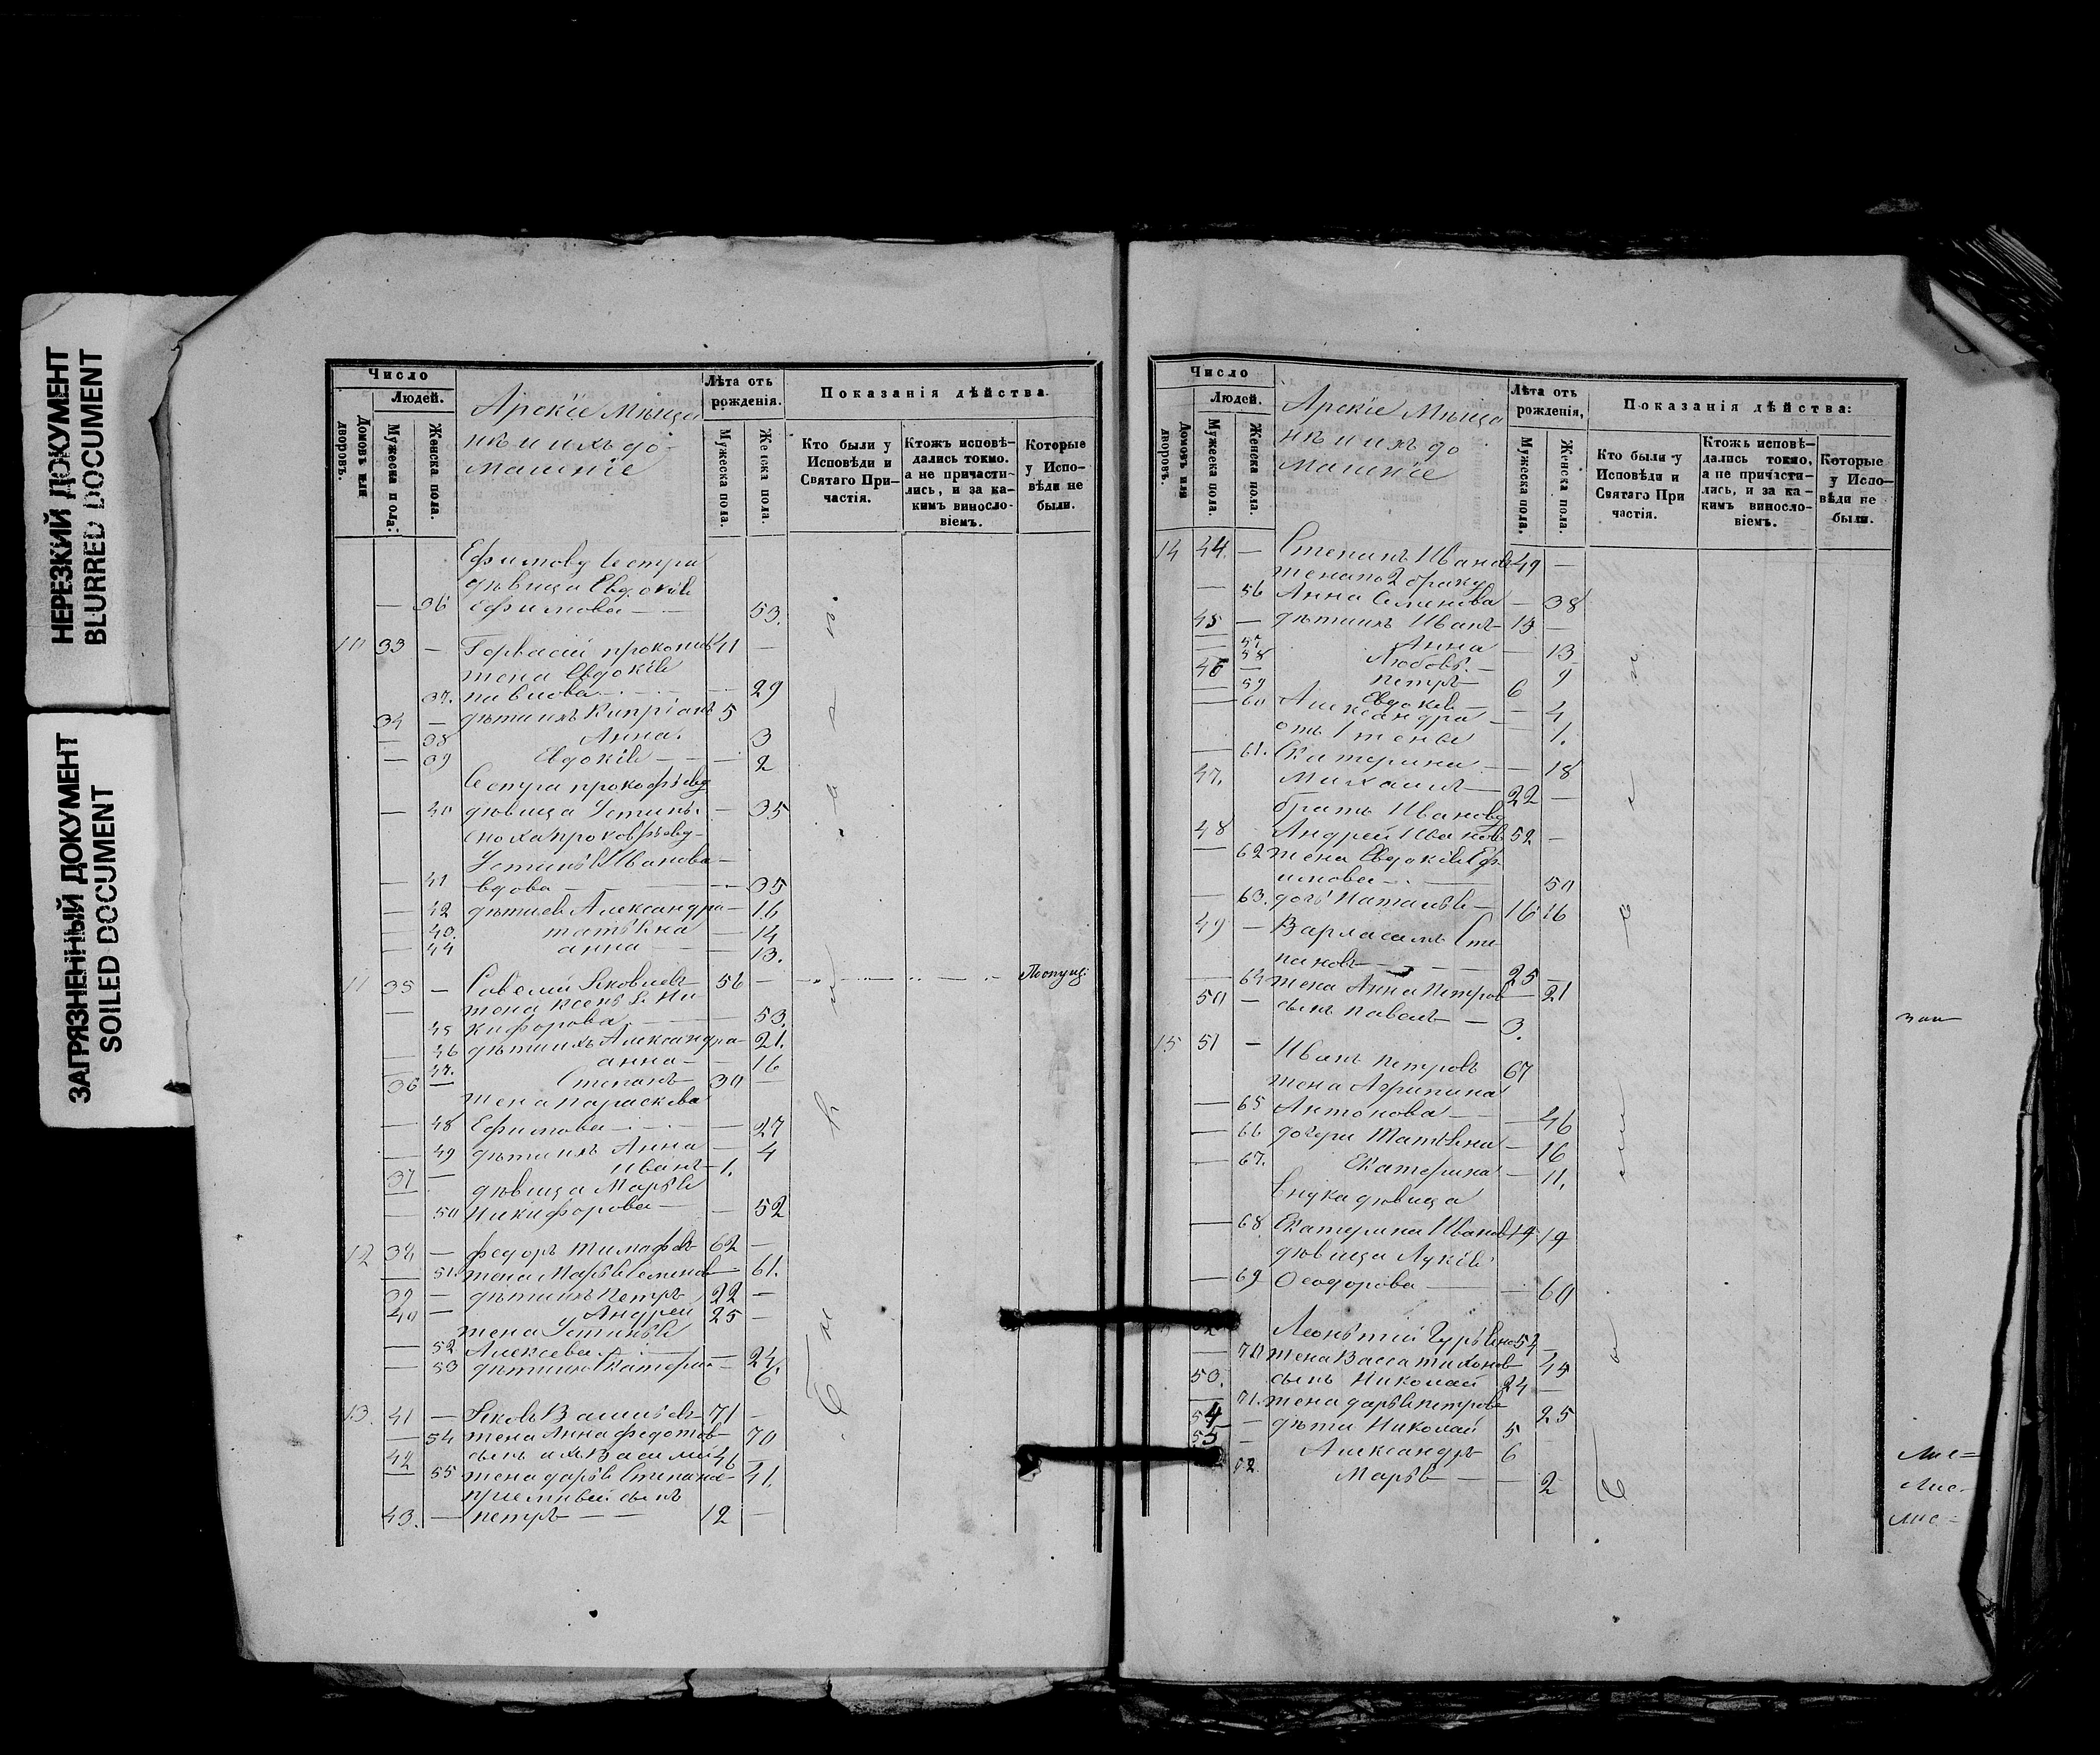 НЕРЕЗКИЙ ДОКУМЕНТ
BLURRED DOCUMENT
ЗАГРЯЗНЕННЫЙ ДОКУМЕНТ
SOILED DOCUMENT
Число
Людей.
Домовъ или дворовъ.
Мужеска пола:
Женска пола.
Арскіе Мѣща
нѣ и ихъ до-
машніе
Лѣта отъ рожденія.
Мужеска пола.
Женска пола.
Показанія дѣйства.
Кто были у Исповѣди и Святаго При-частія.
Ктожъ исповѣ-дались токмо. а не причасти-лись, и за ка-кимъ винослo-віемъ.
Которые у Испо-вѣди не были.
Ефимову Сестра
дѣвица Евдокія
— 36 Ефимова — 53.
10 33 — Гервасій Прокопьев 41 —
жена Евдокія
37. Павлова — 29
34 — дѣти ихъ Кипріанъ 5
— 38 Анна. 3
— 39 Евдокія — — 2
Сестра прокофьева
— 40 дѣвица Устинья — 35
сноха прокофьеву
Устинья Иванова —
— 41 вдова — 35
— 42 дѣти ея Александра — 16
— 43. татьяна — 14
— 44 анна — 13.
11 35 — Савелій Яковлевъ 56 —
жена Ксенья Ни
45 кифорова — 53.
— 46 дѣти ихъ Александра 21.
— 47. анна — 16
36 — Степанъ 30 —
жена параскева
— 48 Ефимова — 27
— 49 дѣти ихъ Анна — 4
37 — иванъ — 1.
дѣвица Марья
— 50 Никифорова — 52
12 38 — федоръ тимофѣев 62 —
— 51. жена Марья Семенов — 61.
39 — дѣти ихъ Петръ 22 —
40 — Андрей 25 —
жена Устинья
— 52 Алексеева — 24.
— 53 дѣти ихъ Катерин — 6
13. 41 — Яковъ Васильевъ 71 —
— 54 жена Анна федотов — 70
42 сынъ ихъ Василий 46 —
— 55 жена дарья Степанов — 41.
приемный сынъ
43. — петръ — — 12 —
Число
Людей.
Домовъ или дворовъ.
Мужеска пола.
Женска пола.
Арскіе Мѣща
нѣ и ихъ до
машніе
Лѣта отъ рожденія,
Мужеска пола.
Женска пола.
Показанія дѣйства:
Кто были у Исповѣди и Святаго При частія.
Ктожъ исповѣ-дались токмо, а не причасти-лись, и за ка-кимъ винослo-віемъ.
Которые у Испо-вѣди не были.
14 44. — Степанъ Иванов 49 —
жена по 2 браку
— 56 Анна Семенова — 38
45 — дѣти ихъ Иванъ — 15 —
— 57 Анна — 13
— 58 Любовь. — 9
46 — петръ — 6
— 59 Евдокія — 4
— 60 Александра — 1.
отъ 1 жены
— 61. Екатерина — 18
47. Михаилъ 22 —
братъ Иванову
48 Андрей Иванов 52 —
— 62 жена Евдокія Еф
имова — 50
— 63. дочь Наталья — 16 16
49 — Варлаамъ Сте
пановъ — 25 —
— 64 жена Анна Петров — 21
50 — сынъ павелъ — 3.
15 51 — Иванъ петровъ 67
жена Агрипина
— 65 Антонова — 46
— 66 дочери Татьяна — 16
— 67. Екатерина — 11.
Внука дѣвица
— 68 Екатерина Иванов 14 14
дѣвица Лукія
— 69 Ѳеодорова — 60
Леонтій Гурьянов 54 —
— 70 жена Васса тихонов 45
53. сынъ Николай 24 —
— 71. жена дарья петрова 25
54 — дѣти Николай 5
55 — Александръ 6
72. Марья — — 2